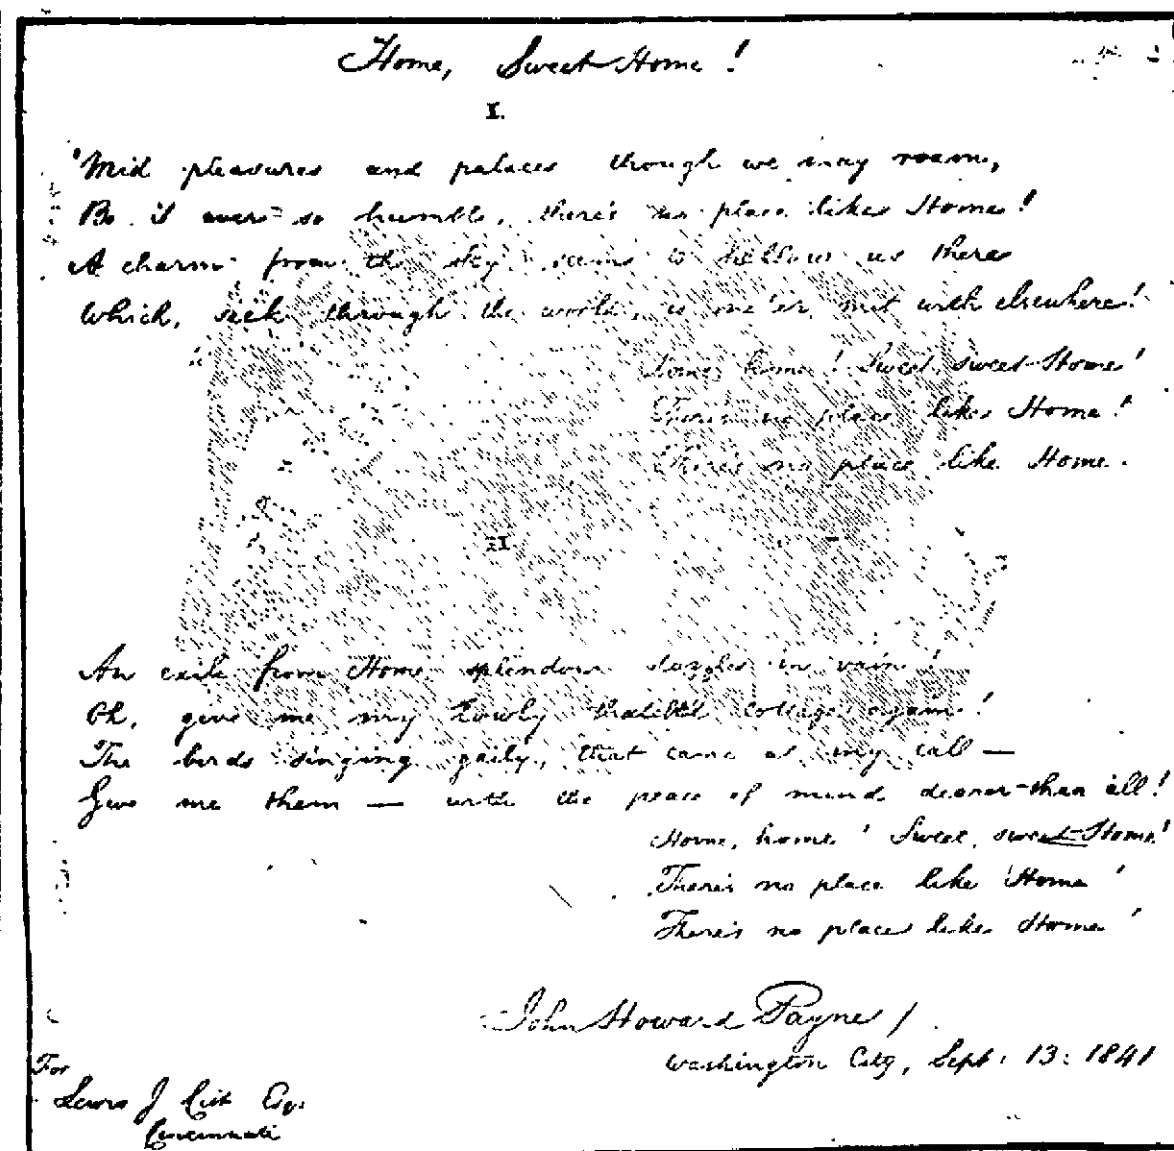 Home, Sweet Home!
I.
'Mid pleasures and palaces though we may roam,
Be it ever so humble, there's no place like Home!
A charm from the sky seems to hallow us there
Which, seek through the world, is ne'er met with elsewhere!
Home, home! Sweet, sweet Home!
There's no place like Home!
There's no place like Home.
II.
An exile from Home splendour dazzles in vain!
Oh, give me my lowly thatch'd cottage again!
The birds singing gaily, that came at my call —
Give me them — with the peace of mind dearer than all!
Home, home! Sweet, sweet Home!
There's no place like Home!
There's no place like Home!
John Howard Payne
Washington City, Sept. 13: 1841
For
Lewis J Cist Esq.
Cincinnati